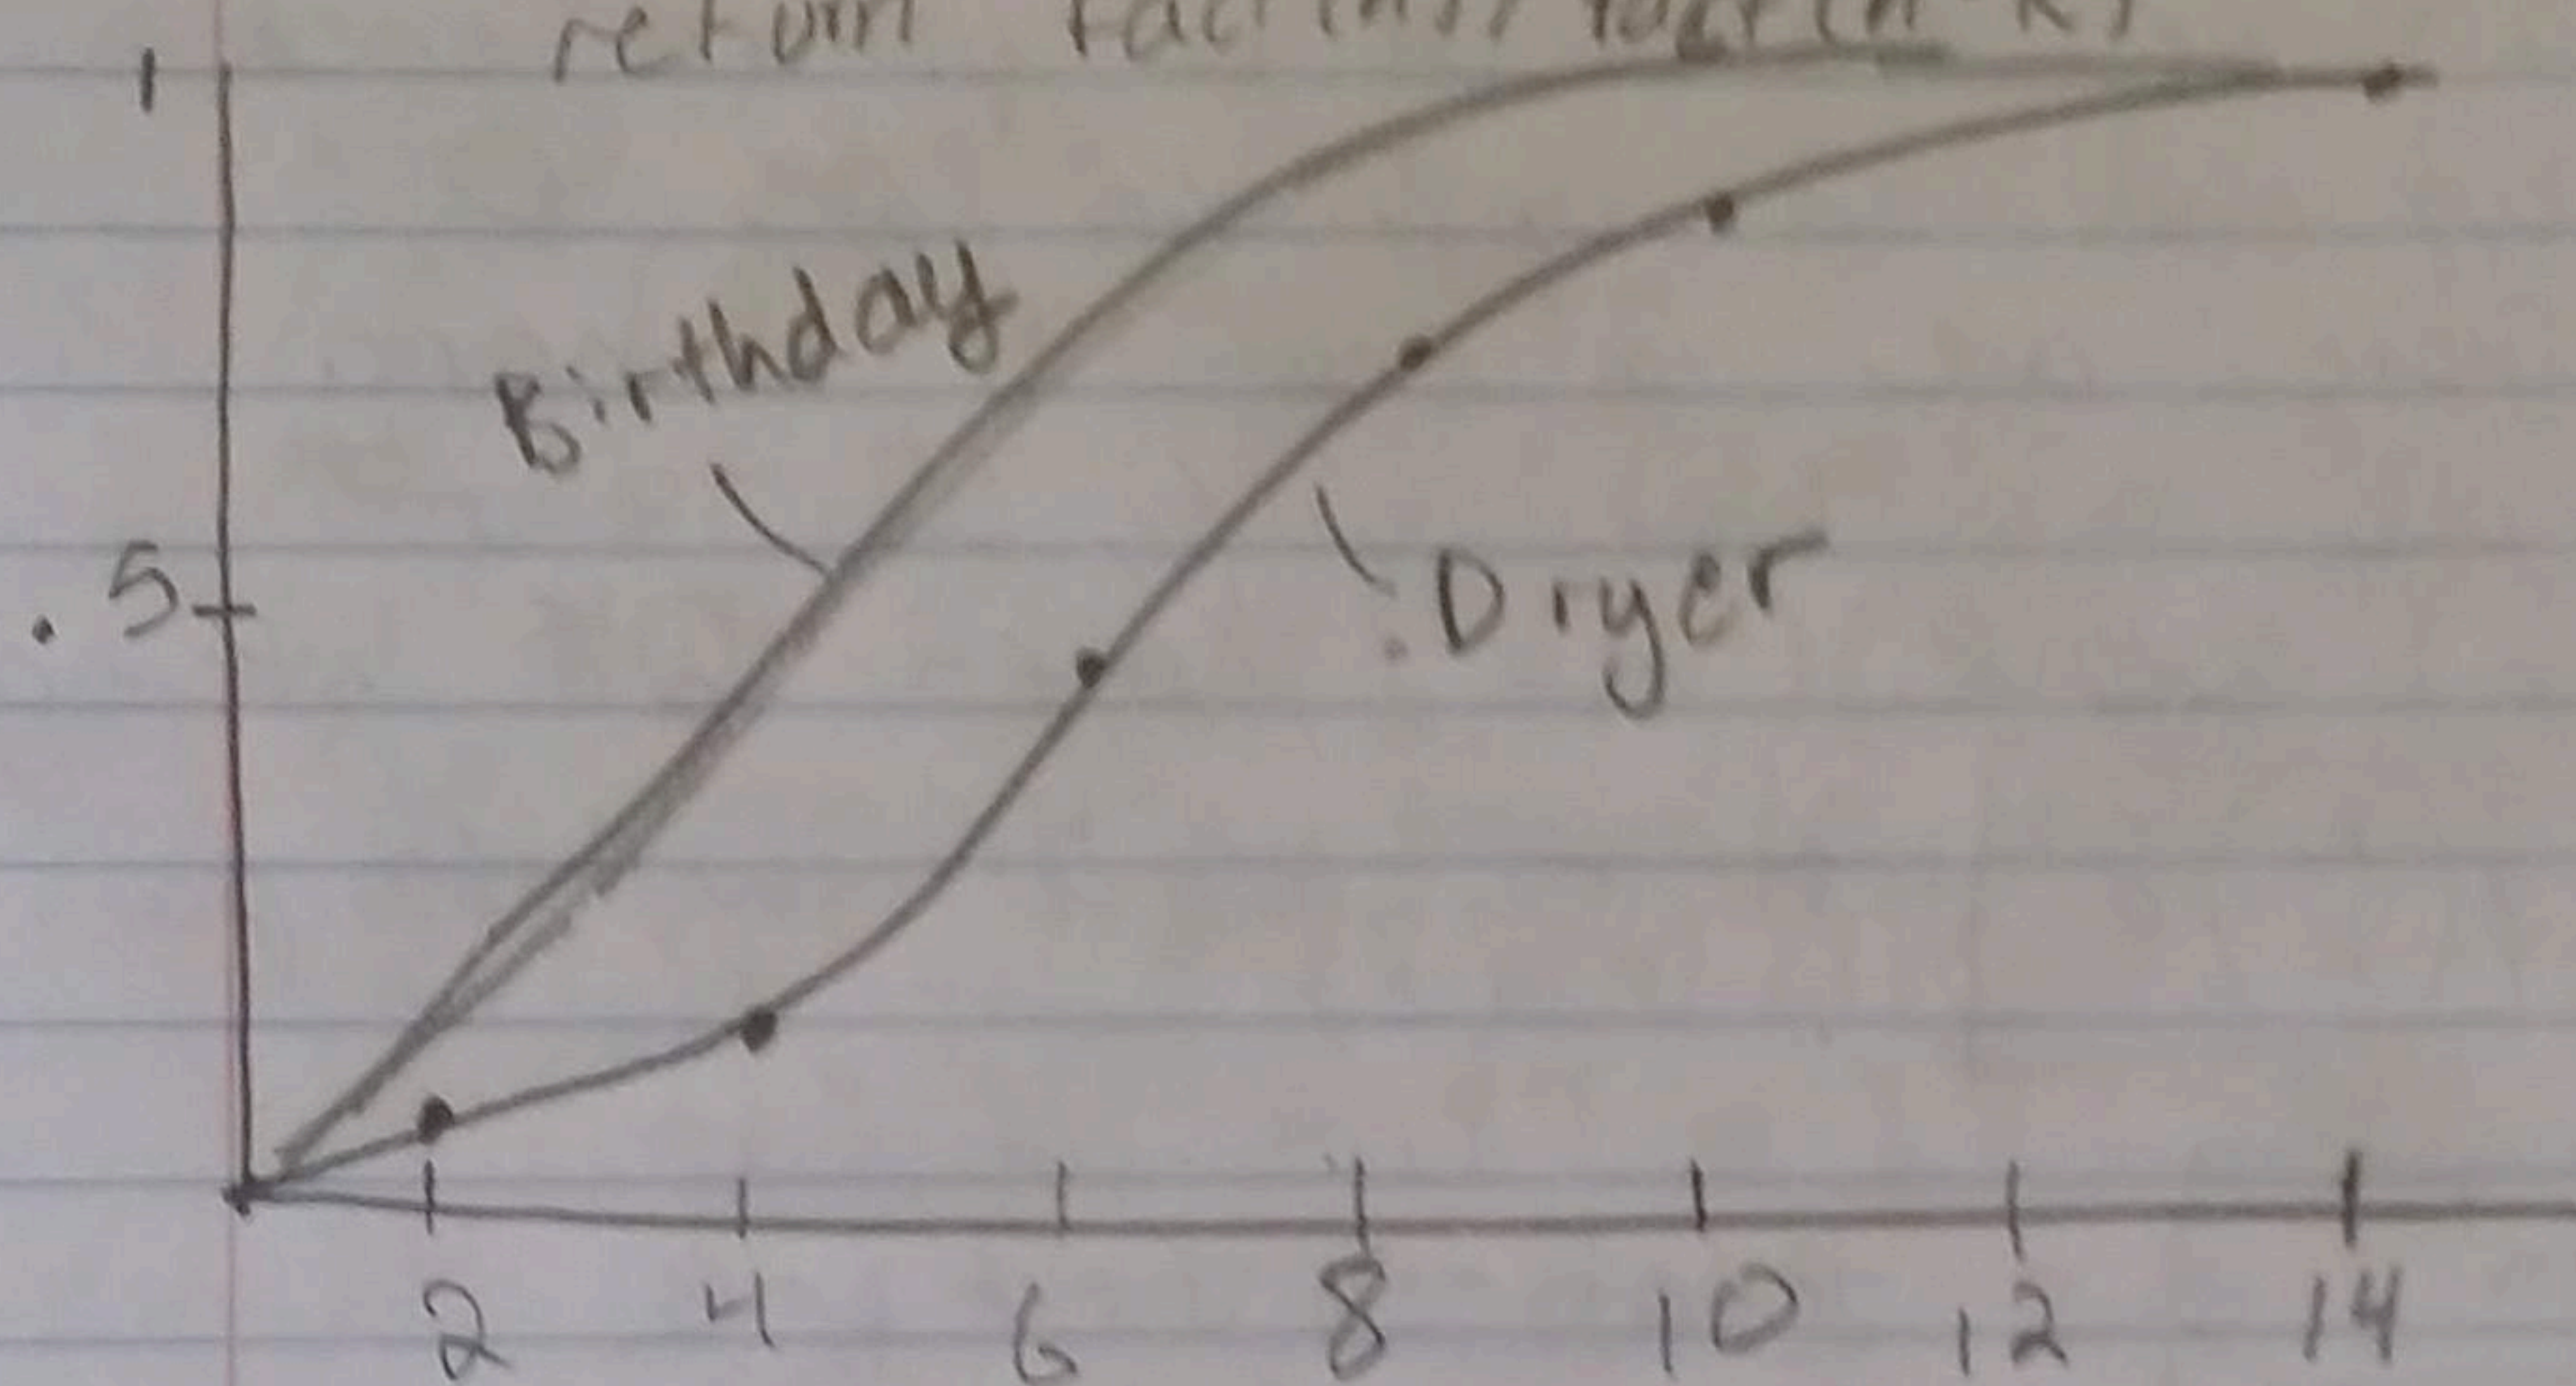 return
1
Birthday
.5
Dryer
2 4 6 8 10 12 14